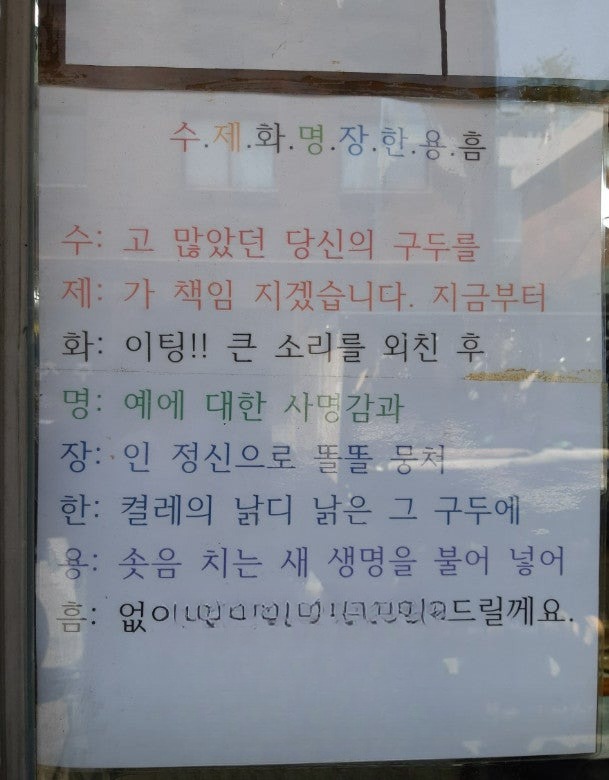 수.제.화.명.장.한.용.흠
수: 고 많았던 당신의 구두를
제: 가 책임 지겠습니다. 지금부터
화: 이팅!! 큰 소리를 외친 후
명: 예에 대한 사명감과
장: 인 정신으로 똘똘 뭉쳐
한: 켤레의 낡디 낡은 그 구두에
용: 솟음 치는 새 생명을 불어 넣어
흠: 드릴께요.